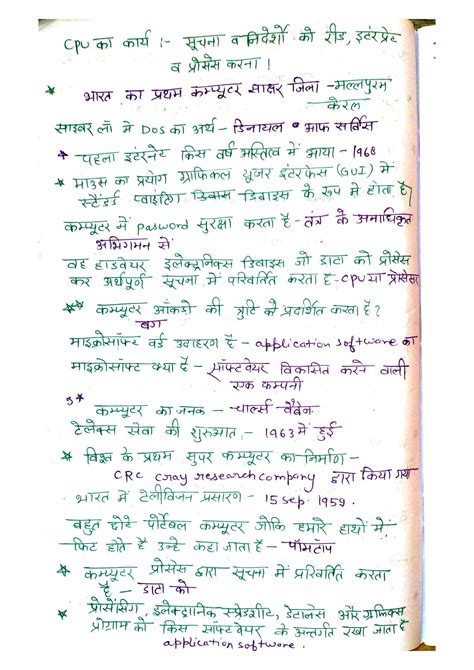 CPU का कार्य :- सूचना व निर्देशों को रीड, इंटरप्रेट
व प्रोसेस करना !
भारत का प्रथम कम्प्यूटर साक्षर जिला - मल्लपुरम
केरल
साइबर लॉ में DOS का अर्थ - डिनायल आफ सर्विस
* पहला इंटरनेट किस वर्ष अस्तित्व में आया - 1968
* माउस का प्रयोग ग्राफिकल यूजर इंटरफेस (GUI) में
स्टैंडर्ड प्वाइंटिंग डिवाइस के रूप में होता है
कम्प्यूटर में password सुरक्षा करता है - तंत्र के अनाधिकृत
अभिगमन से
वह हार्डवेयर इलेक्ट्रॉनिक्स डिवाइस जो डाटा को प्रोसेस
कर अर्थपूर्ण सूचना में परिवर्तित करता है - CPU या प्रोसेसर
** कम्प्यूटर आँकडो की त्रुटि को प्रदर्शित करता है ?
बग
माइक्रोसॉफ्ट वर्ड उदाहरण है - application software का
माइक्रोसॉफ्ट क्या है - सॉफ्टवेयर विकासित करने वाली
एक कम्पनी
* कम्प्यूटर का जनक - चार्ल्स बैबेज
टेलेक्स सेवा की शुरुआत - 1963 में हुई
* विश्व के प्रथम सुपर कम्प्यूटर का निर्माण -
CRC cray research company द्वारा किया गया
भारत में टेलीविजन प्रसारण - 15 sep. 1959.
बहुत छोटे पोर्टेबल कम्प्यूटर जोकि हमारे हाथों में
फिट होते है उन्हे कहा जाता है - पॉमटॉप
* कम्प्यूटर प्रोसेस द्वारा सूचना में परिवर्तित करता
है - डाटा को
* प्रोसेसिंग, इलेक्ट्रानिक स्प्रेडशीट, और ग्राफिक्स
प्रोग्राम को किस सॉफ्टवेयर के अन्तर्गत रखा जाता है
application software.